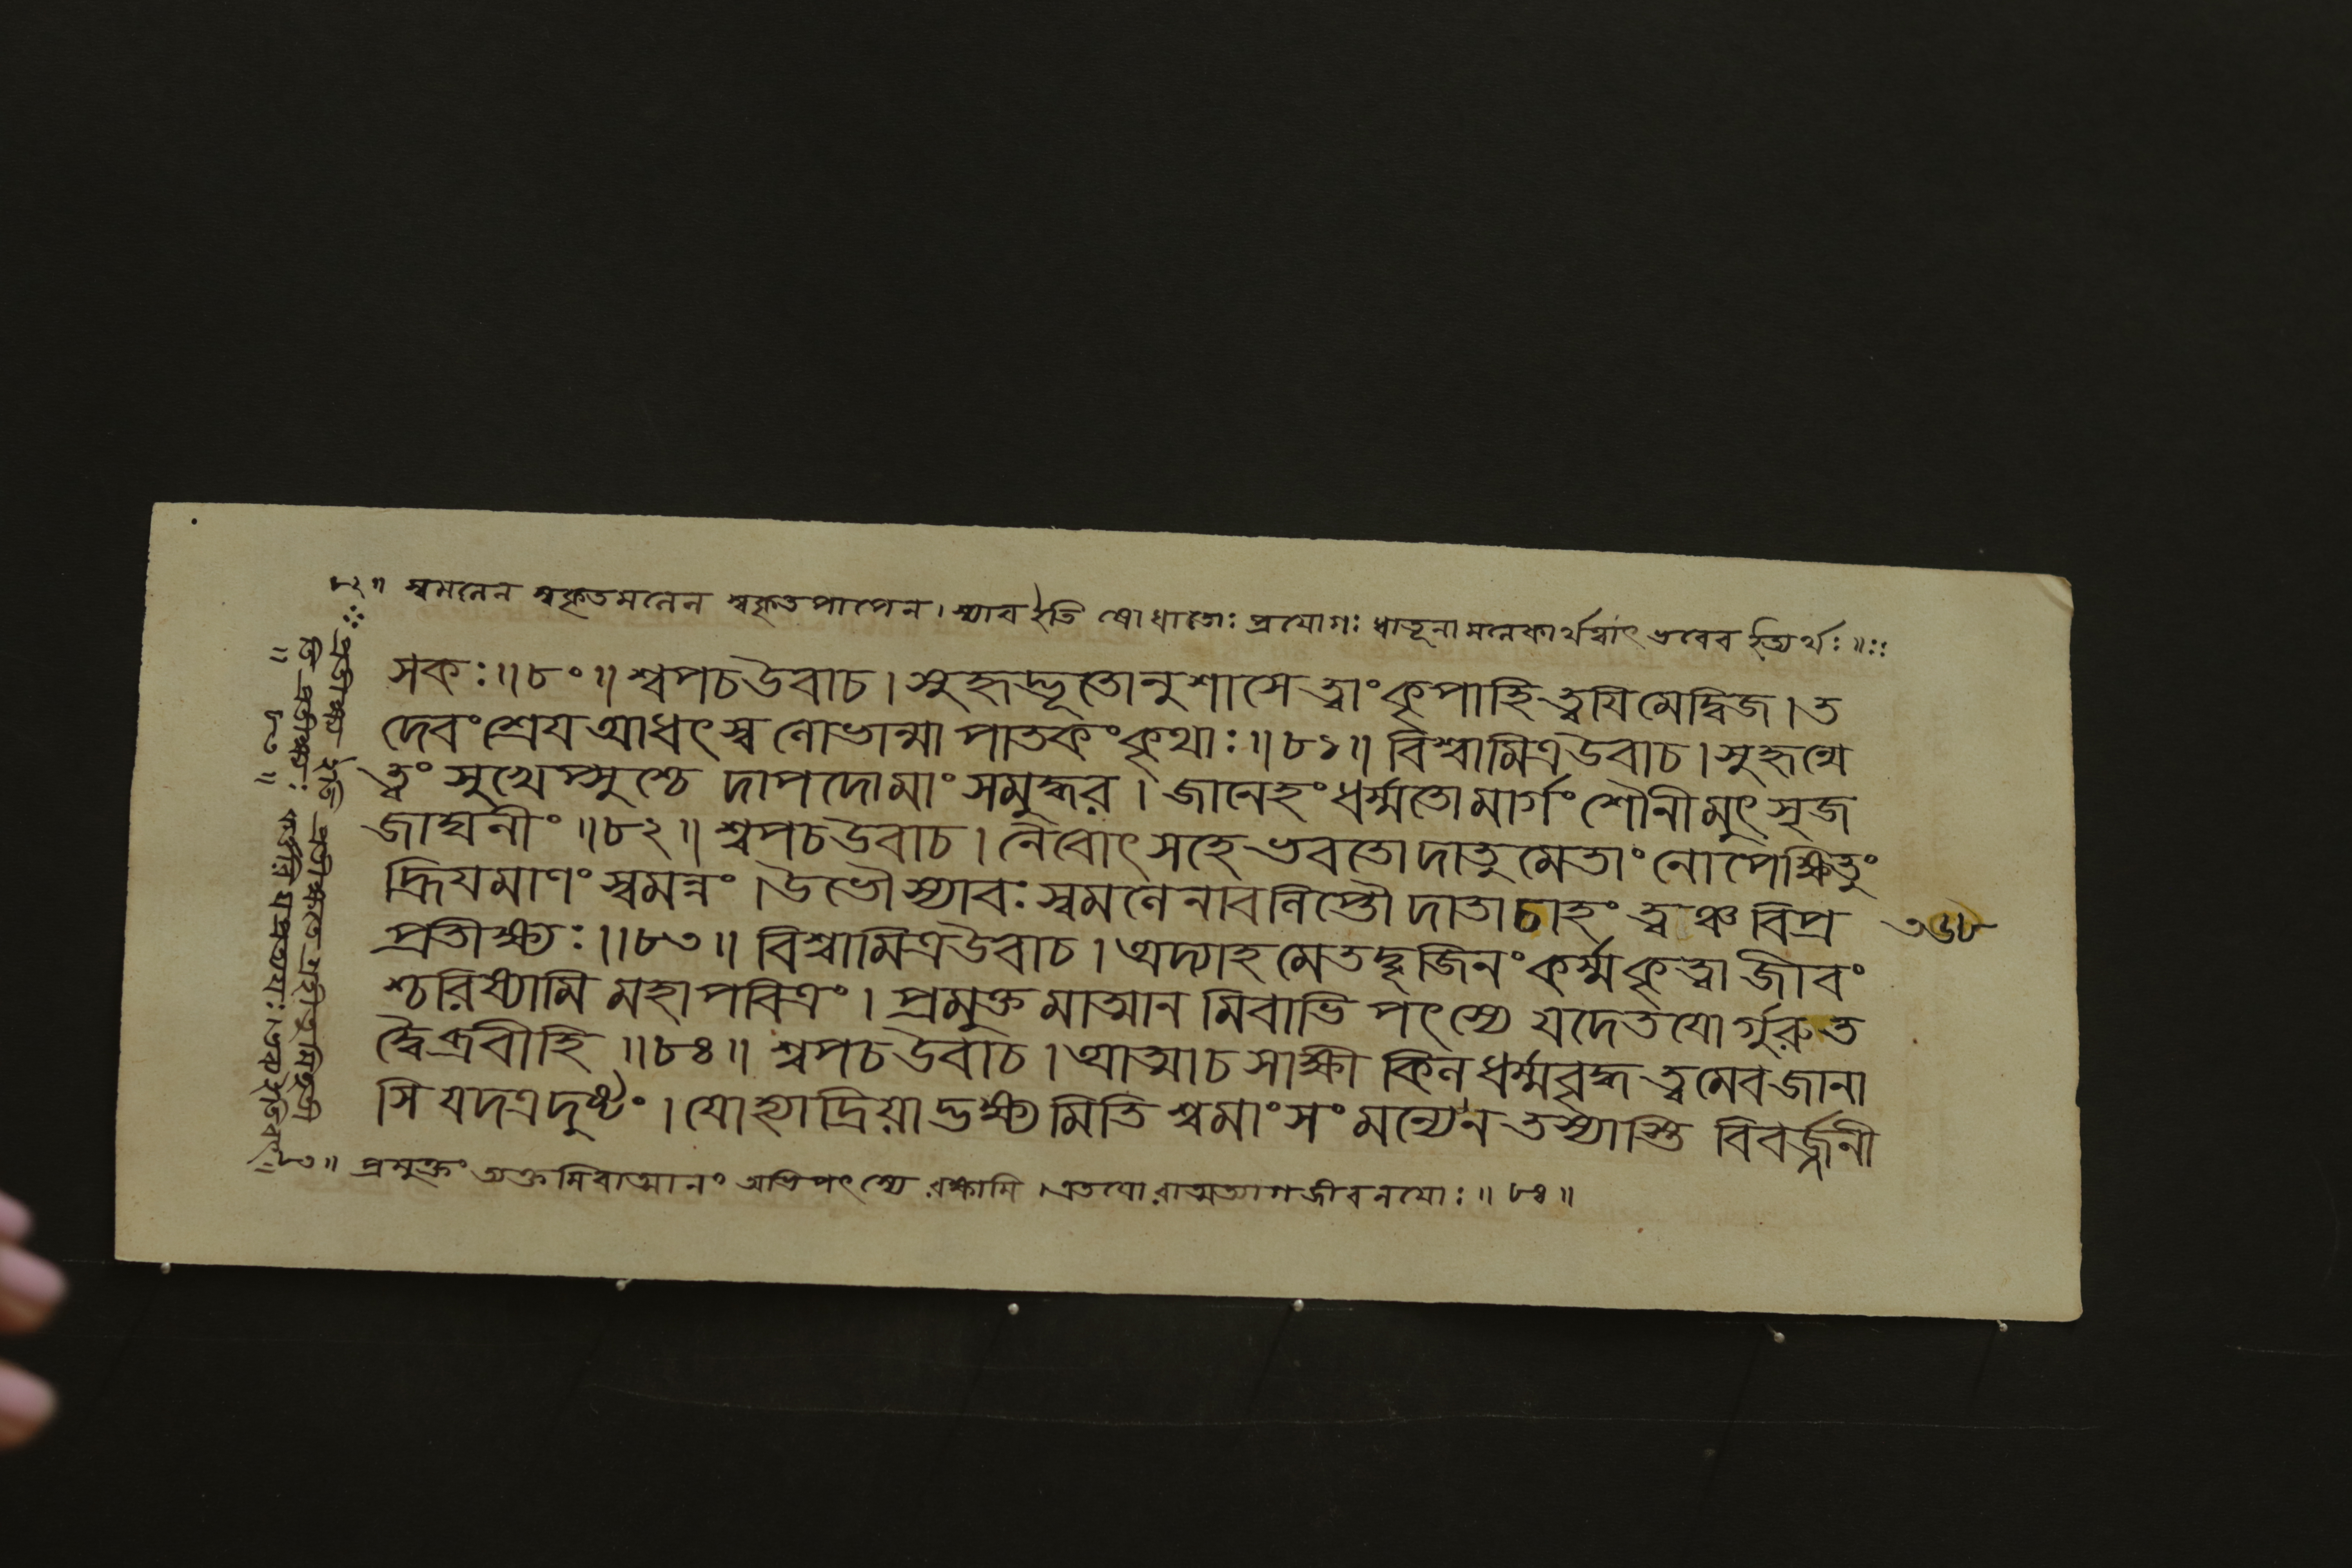 ৮২॥ স্বমনেন স্বকৃতমনেন স্বকৃতপাপেন। স্যাব ইতি ষোধাতোঃ প্রযোগঃ ধাতূনামনেকার্থত্বাৎ ভবেব ইত্যর্থঃ॥
সকঃ॥৮০॥ শ্বপচউবাচ। সুহৃদ্ভূতোনুশাসে ত্বাং কৃপাহি ত্বযি মেদ্বিজ। ত
দেবং শ্রেয আধৎস্ব নোভান্মা পাতকং কৃথাঃ॥৮১॥ বিশ্বামিত্রউবাচ। সুহৃন্মে
ত্বং সুখেপ্সুশ্চে দাপদোমাং সমুদ্ধর। জানেহং ধর্ম্মতোমার্গং শৌনীমুৎসৃজ
জাঘনীং॥৮২॥ শ্বপচউবাচ। নৈবোৎসহে ভবতোদাতুমেতাং নোপেক্ষিতুং
দ্ধ্রিযমাণং স্বমন্নং। উভৌ স্যাবঃ স্বমনেনাবলিপ্তৌ দাতাচাহং ত্বঞ্চ বিপ্র
প্রতীক্ষ্যঃ॥৮৩॥ বিশ্বামিত্রউবাচ। অদ্যাহমেতদ্বৃজিনং কর্ম্মকৃত্বা জীবং
শ্চরিষ্যামি মহাপবিত্রং। প্রমুক্তমাত্মানমিবাভিপৎস্যে যদেতযোর্গুরুত
দ্বৈব্রবীহি॥৮৪॥ শ্বপচউবাচ। আত্মাচ সাক্ষী কিল ধর্ম্মব্রহ্ম ত্বমেব জানা
সি যদত্রদুষ্টং। যোহ্যাদ্রিয়াদ্ভক্ষ্যমিতি শ্বমাংসং মন্যেন তস্যাস্তি বিবর্জ্জনী
৩৬৮
প্রমুক্তং ত্যক্তমিবাত্মানং অভিপৎস্যে রক্ষামি। এতযোরাত্মত্যাগজীবনযোঃ॥৮৪॥